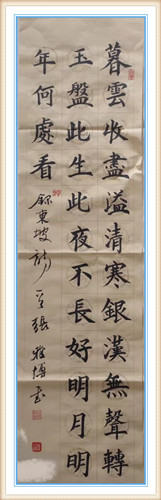 暮雲收盡溢清寒銀漢無聲轉
玉盤此生此夜不長好明月明
年何處看
錄東坡詩一首張雅博書